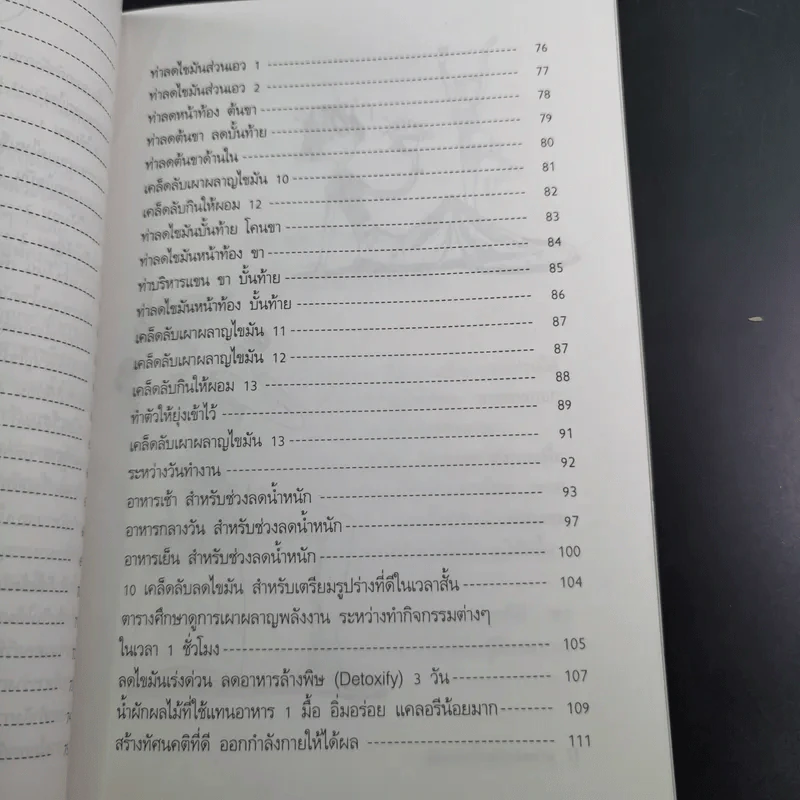 ท่าลดไขมันส่วนเอว 1 ---------- 76
ท่าลดไขมันส่วนเอว 2 ---------- 77
ท่าลดหน้าท้อง ต้นขา ---------- 78
ท่าลดต้นขา ลดบั้นท้าย ---------- 79
ท่าลดต้นขาด้านใน ---------- 80
เคล็ดลับเผาผลาญไขมัน 10 ---------- 81
เคล็ดลับกินให้ผอม 12 ---------- 82
ท่าลดไขมันบั้นท้าย โคนขา ---------- 83
ท่าลดไขมันหน้าท้อง ขา ---------- 84
ท่าบริหารแขน ขา บั้นท้าย ---------- 85
ท่าลดไขมันหน้าท้อง บั้นท้าย ---------- 86
เคล็ดลับเผาผลาญไขมัน 11 ---------- 87
เคล็ดลับเผาผลาญไขมัน 12 ---------- 87
เคล็ดลับกินให้ผอม 13 ---------- 88
ทำตัวให้ยุ่งเข้าไว้ ---------- 89
เคล็ดลับเผาผลาญไขมัน 13 ---------- 91
ระหว่างวันทำงาน ---------- 92
อาหารเช้า สำหรับช่วงลดน้ำหนัก ---------- 93
อาหารกลางวัน สำหรับช่วงลดน้ำหนัก ---------- 97
อาหารเย็น สำหรับช่วงลดน้ำหนัก ---------- 100
10 เคล็ดลับลดไขมัน สำหรับเตรียมรูปร่างที่ดีในเวลาสั้น ---------- 104
ตารางศึกษาดูการเผาผลาญพลังงาน ระหว่างทำกิจกรรมต่างๆ
ในเวลา 1 ชั่วโมง ---------- 105
ลดไขมันเร่งด่วน ลดอาหารล้างพิษ (Detoxify) 3 วัน ---------- 107
น้ำผักผลไม้ที่ใช้แทนอาหาร 1 มื้อ อิ่มอร่อย แคลอรีน้อยมาก ---------- 109
สร้างทัศนคติที่ดี ออกกำลังกายให้ได้ผล ---------- 111